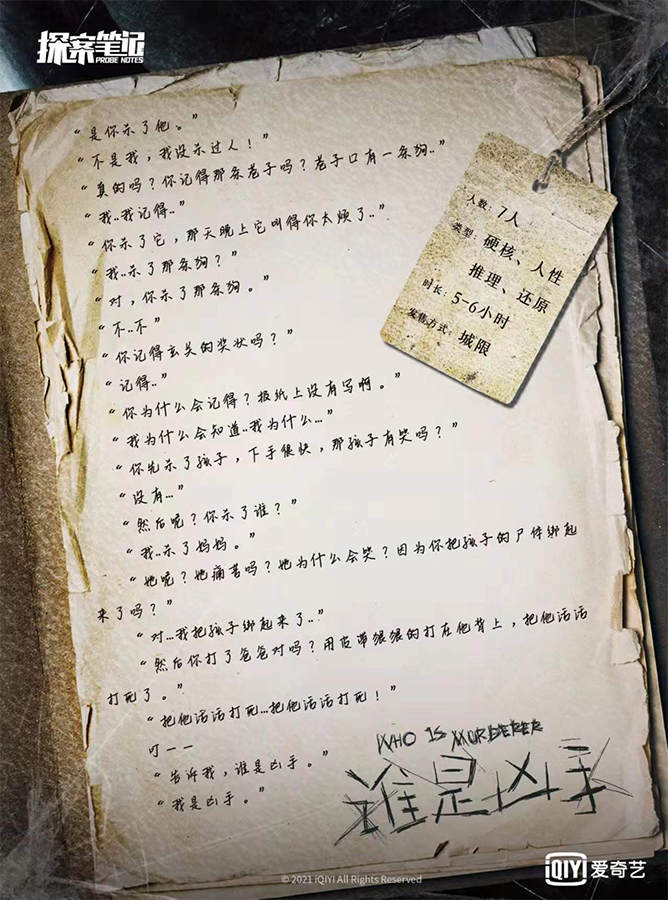 探案笔记
PROBE NOTES
“是你杀了他。”
“不是我，我没杀过人！”
“真的吗？你记得那条巷子吗？巷子口有一条狗..”
“我..我记得..”
“你杀了它，那天晚上它叫得你太烦了..”
“我..杀了那条狗？”
“对，你杀了那条狗。”
“不..不”
“你记得玄关的奖状吗？”
“记得..”
“你为什么会记得？报纸上没有写啊。”
“我为什么会知道..我为什么...”
“你先杀了孩子，下手很快，那孩子有哭吗？”
“没有...”
“然后呢？你杀了谁？”
“我..杀了妈妈。”
“她呢？她痛苦吗？她为什么会哭？因为你把孩子的尸体绑起
来了吗？”
“对...我把孩子绑起来了..”
“然后你打了爸爸对吗？用皮带狠狠的打在他背上，把他活活
打死了。”
“把他活活打死...把他活活打死！”
叮——
“告诉我，谁是凶手。”
“我是凶手。”
人数：7人
类型：硬核、人性
推理、还原
时长：5-6小时
发售方式：城限
WHO IS MURDERER
谁是凶手
© 2021 iQIYI All Rights Reserved
iQIYI 爱奇艺